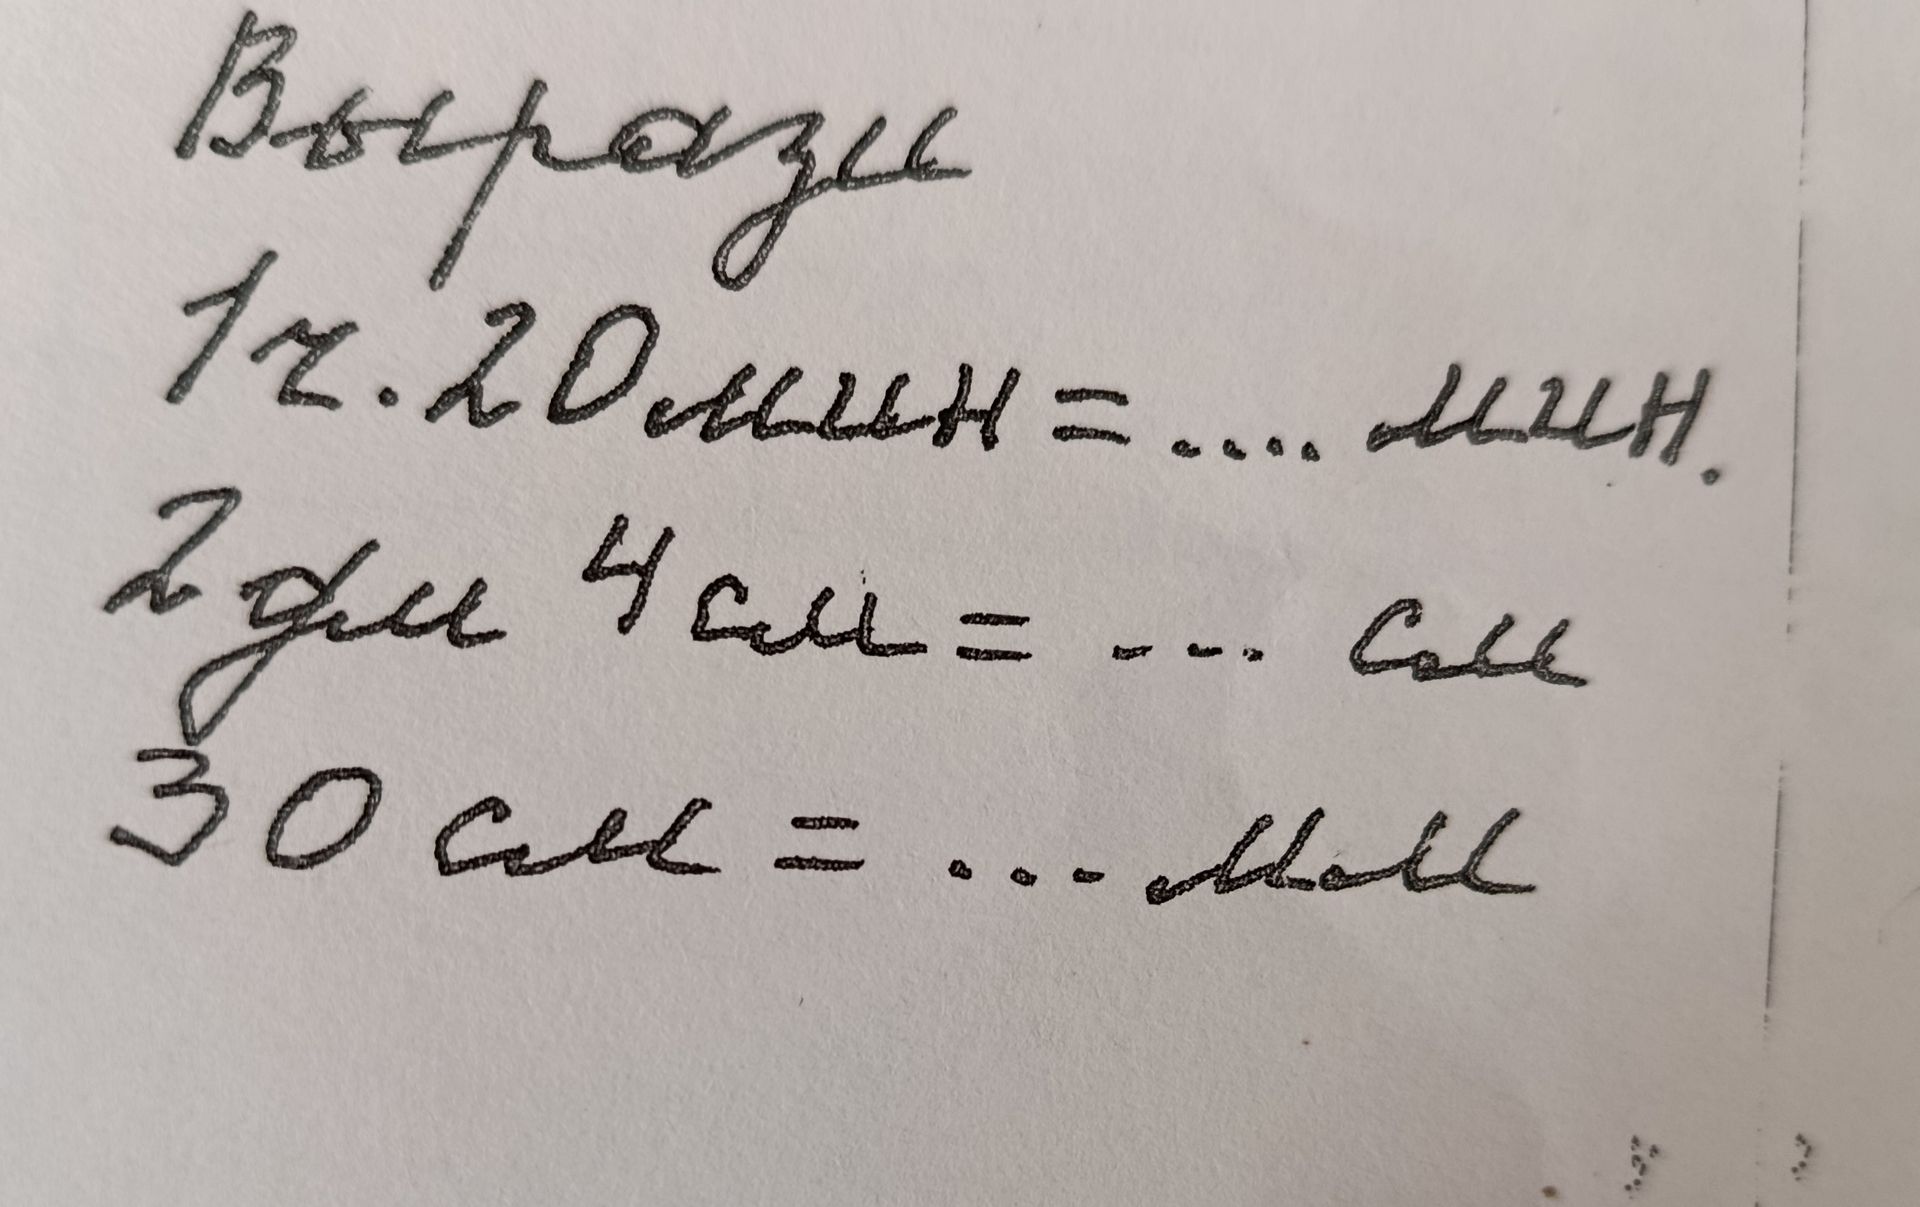 Вырази
1ч. 20мин = .... мин.
2дм 4см = ... см
30 см = ... мм